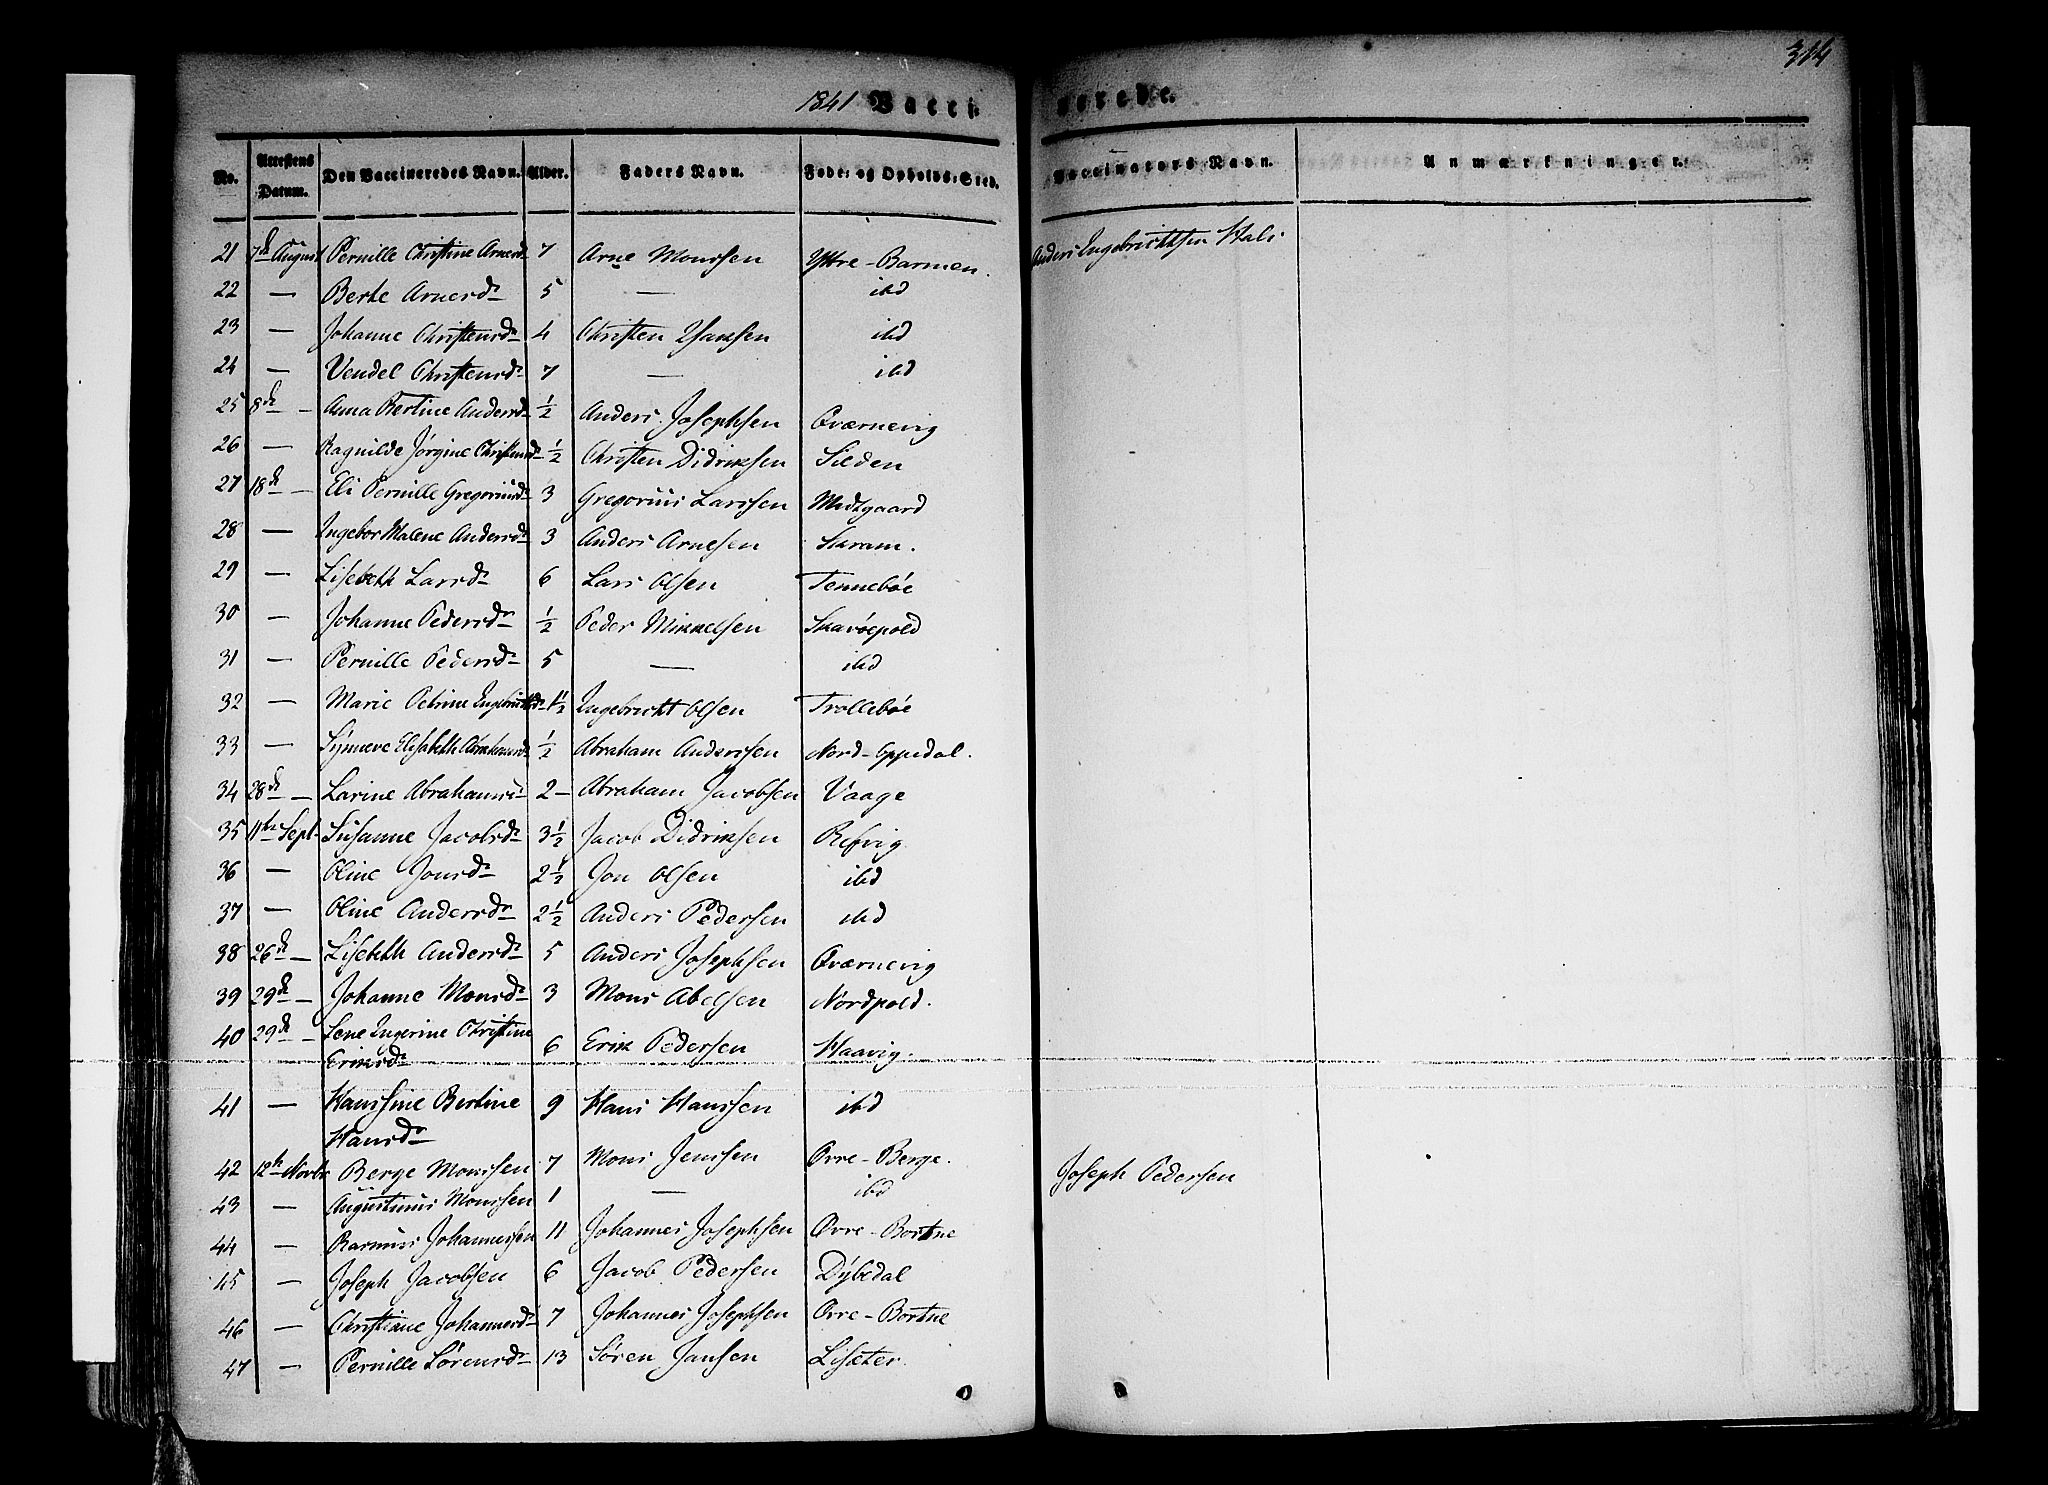 314
1841 Vacci nerede.
No. Attestens Datum. Den Vaccineredes Navn. Alder. Faders Navn. Føde- og Opholds-Sted. Vaccinators Navn. Anmærkninger.
21 7de August Pernille Christine Arnesd 7 Arne Monssen Yttre-Barmen. Anders Engebrichtsen Hals
22 — Berte Arnesdr 5 — ibd
23 — Johanne Christensdr 4 Christen Hansen ibd
24 — Vendel Christensdr 7 — ibd
25 8de — Anna Bertine Andersdr ½ Anders Josephsen Qværnevig
26 — Ragnilde Jørgine Christensd ½ Christen Didriksen Silden
27 18de — Eli Pernille Gregoriusdr 3 Gregorius Larssen Midtgaard
28 — Ingebor Malene Andersdr 3 Anders Arnesen Skram.
29 — Lisebeth Larsdr 6 Lars Olsen Tennebøe
30 — Johanne Pedersdr ½ Peder Mikkelsen Skavøepold
31 — Pernille Pedersdr 5 — ibd
32 — Marie Petrine Engebrichtsdr 1½ Ingebricht Olsen Trollebøe
33 — Synneve Elisabeth Abrahamsdr ½ Abraham Anderssen Nord-Oppedal.
34 28de — Larine Abrahamsd 2 — Abraham Jacobsen Vaage
35 11te Sept. Susanne Jacobsdr 3½ Jacob Didriksen Refvig
36 — Oline Jonsdr 2½ Jon Olsen ibd
37 — Oline Andersdr 2½ Anders Pedersen ibd
38 26de — Lisebeth Andersdr 5 Anders Josephsen Qværnevig
39 29de — Johanne Monsdr 3 Mons Abelsen Nordpold.
40 29de — Lene Ingerine Christine
Eriksdr 6 Erik Pedersen Haavig.
41 — Hanssine Bertine 9 Hans Hanssen ibd
Hansdr
42 12te Novbr Berge Monssen 7 Mons Jenssen Øvre-Berge. Joseph Pedersen
43 — Augustinus Monssen 1 — ibd
44 — Rasmus Johannessen 11 Johannes Josephsen Øvre-Bortne
45 — Joseph Jacobsen 6 Jacob Pedersen Dybedal
46 — Christiane Johannesdr 7 Johannes Josephsen Øvre-Bortne
47 — Pernille Sørensdr 13 Søren Jansen Lisæter.